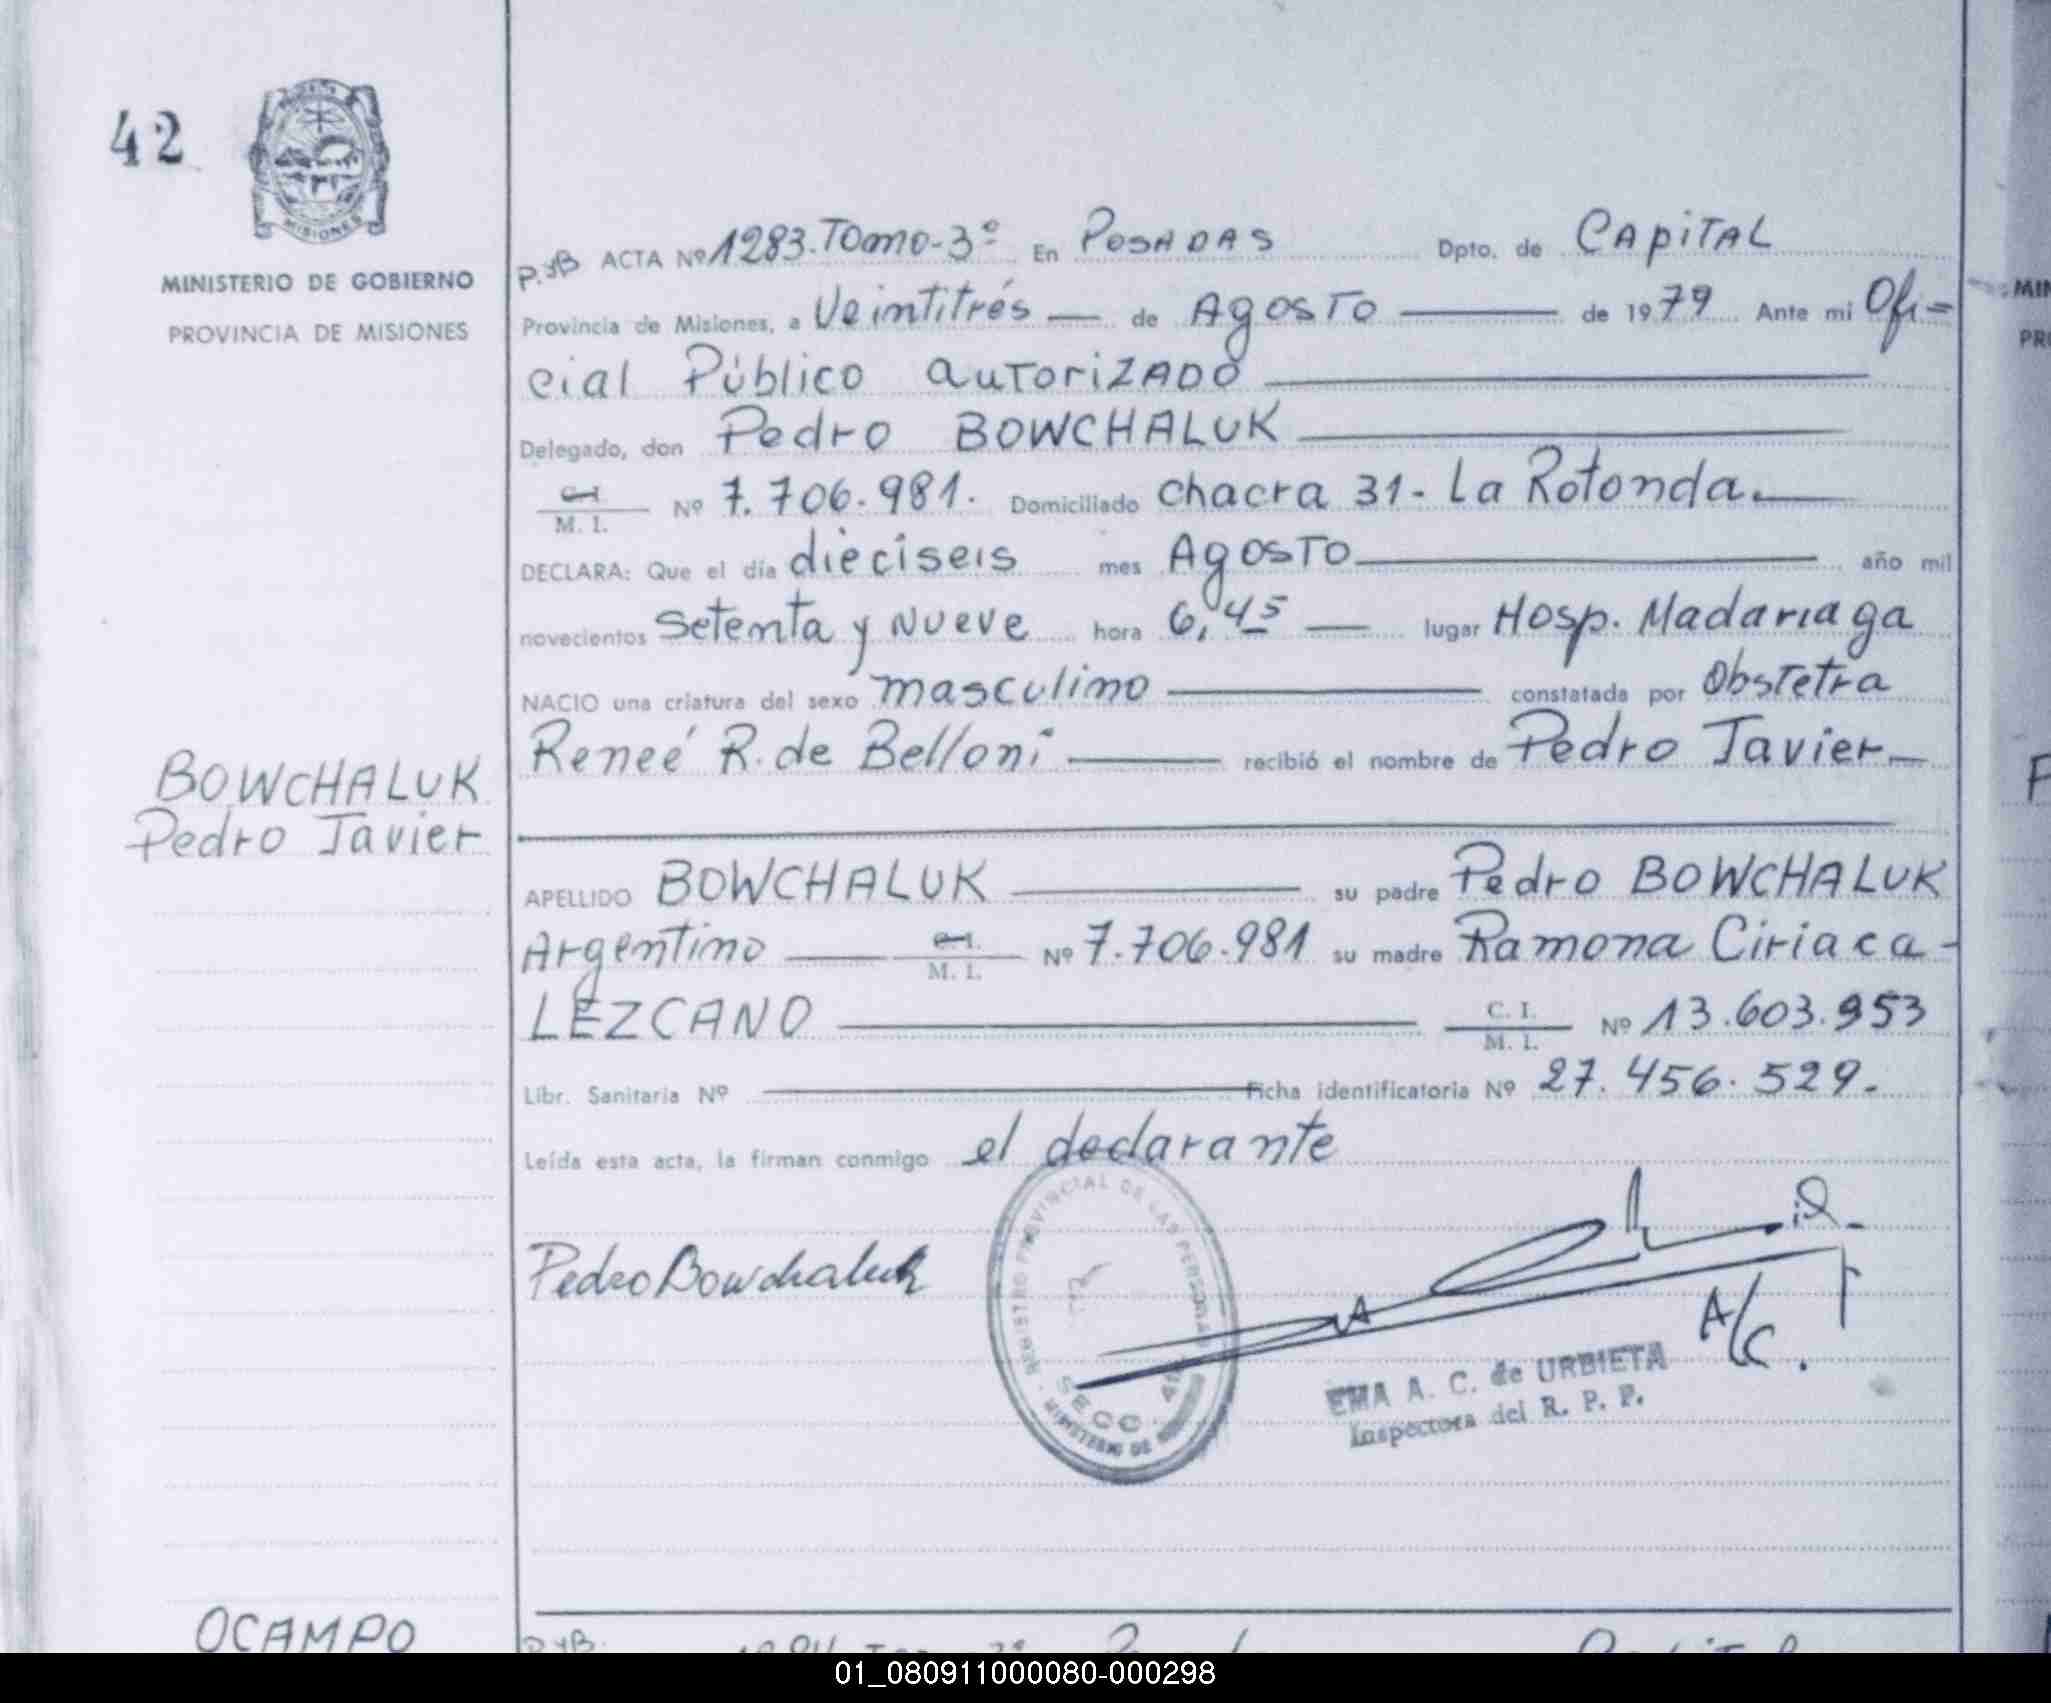 42
MISIONES
MINISTERIO DE GOBIERNO
PROVINCIA DE MISIONES
BOWCHALUK
Pedro Javier
P.yB ACTA Nº 1283. Tomo-3º En POSADAS Dpto. de CAPITAL
Provincia de Misiones, a Veintitrés — de AGOSTO — de 1979 Ante mi Ofi=
cial Público autorizado
Delegado, don Pedro BOWCHALUK
C. I.
M. I. Nº 7.706.981. Domiciliado chacra 31- La Rotonda.
DECLARA: Que el día dieciseis mes Agosto año mil
novecientos setenta y nueve hora 6,45 — lugar Hosp. Madariaga
NACIO una criatura del sexo masculino constatada por Obstetra
Reneé R. de Belloni recibió el nombre de Pedro Javier
APELLIDO BOWCHALUK su padre Pedro BOWCHALUK
Argentino C. I.
M. I. Nº 7.706.981 su madre Ramona Ciriaca-
LEZCANO C. I.
M. I. Nº 13.603.953
Libr. Sanitaria Nº Ficha identificatoria Nº 27.456.529.
Leída esta acta, la firman conmigo el declarante
Pedro Bowchaluk
REGISTRO PROVINCIAL DE LAS PERSONAS
SECC
MINISTERIO DE
A/C.
EMA A. C. de URBIETA
Inspectora del R. P. P.
OCAMPO
P.yB.
01_080911000080-000298